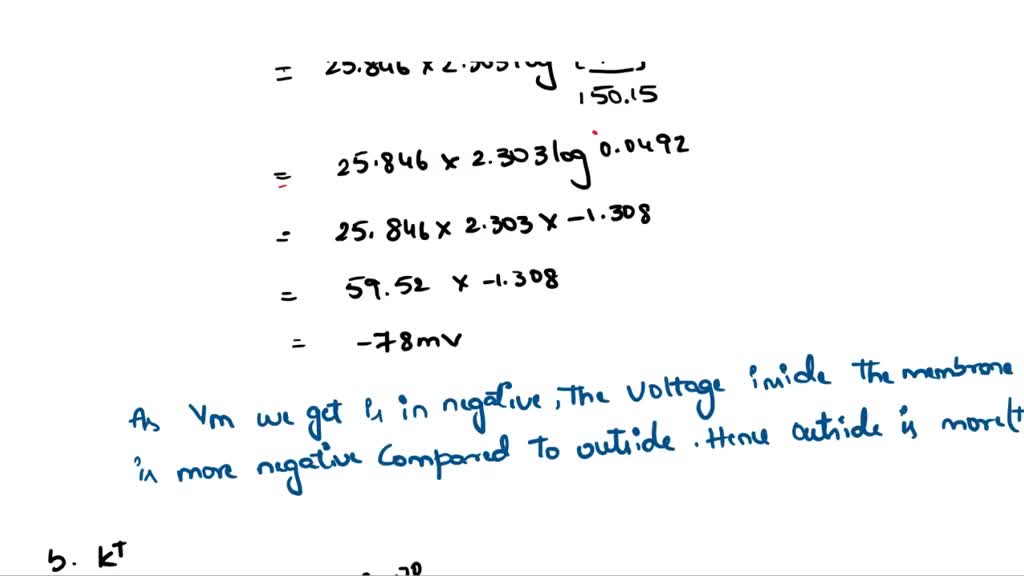 = 25.846 × 2.303 log
150.15
= 25.846 × 2.303 log 0.0492
= 25.846 × 2.303 × -1.308
= 59.52 × -1.308
= -78mv
As Vm we get is in negative, The voltage inside the membrane
is more negative compared to outside. Hence outside is more (+
b. K+